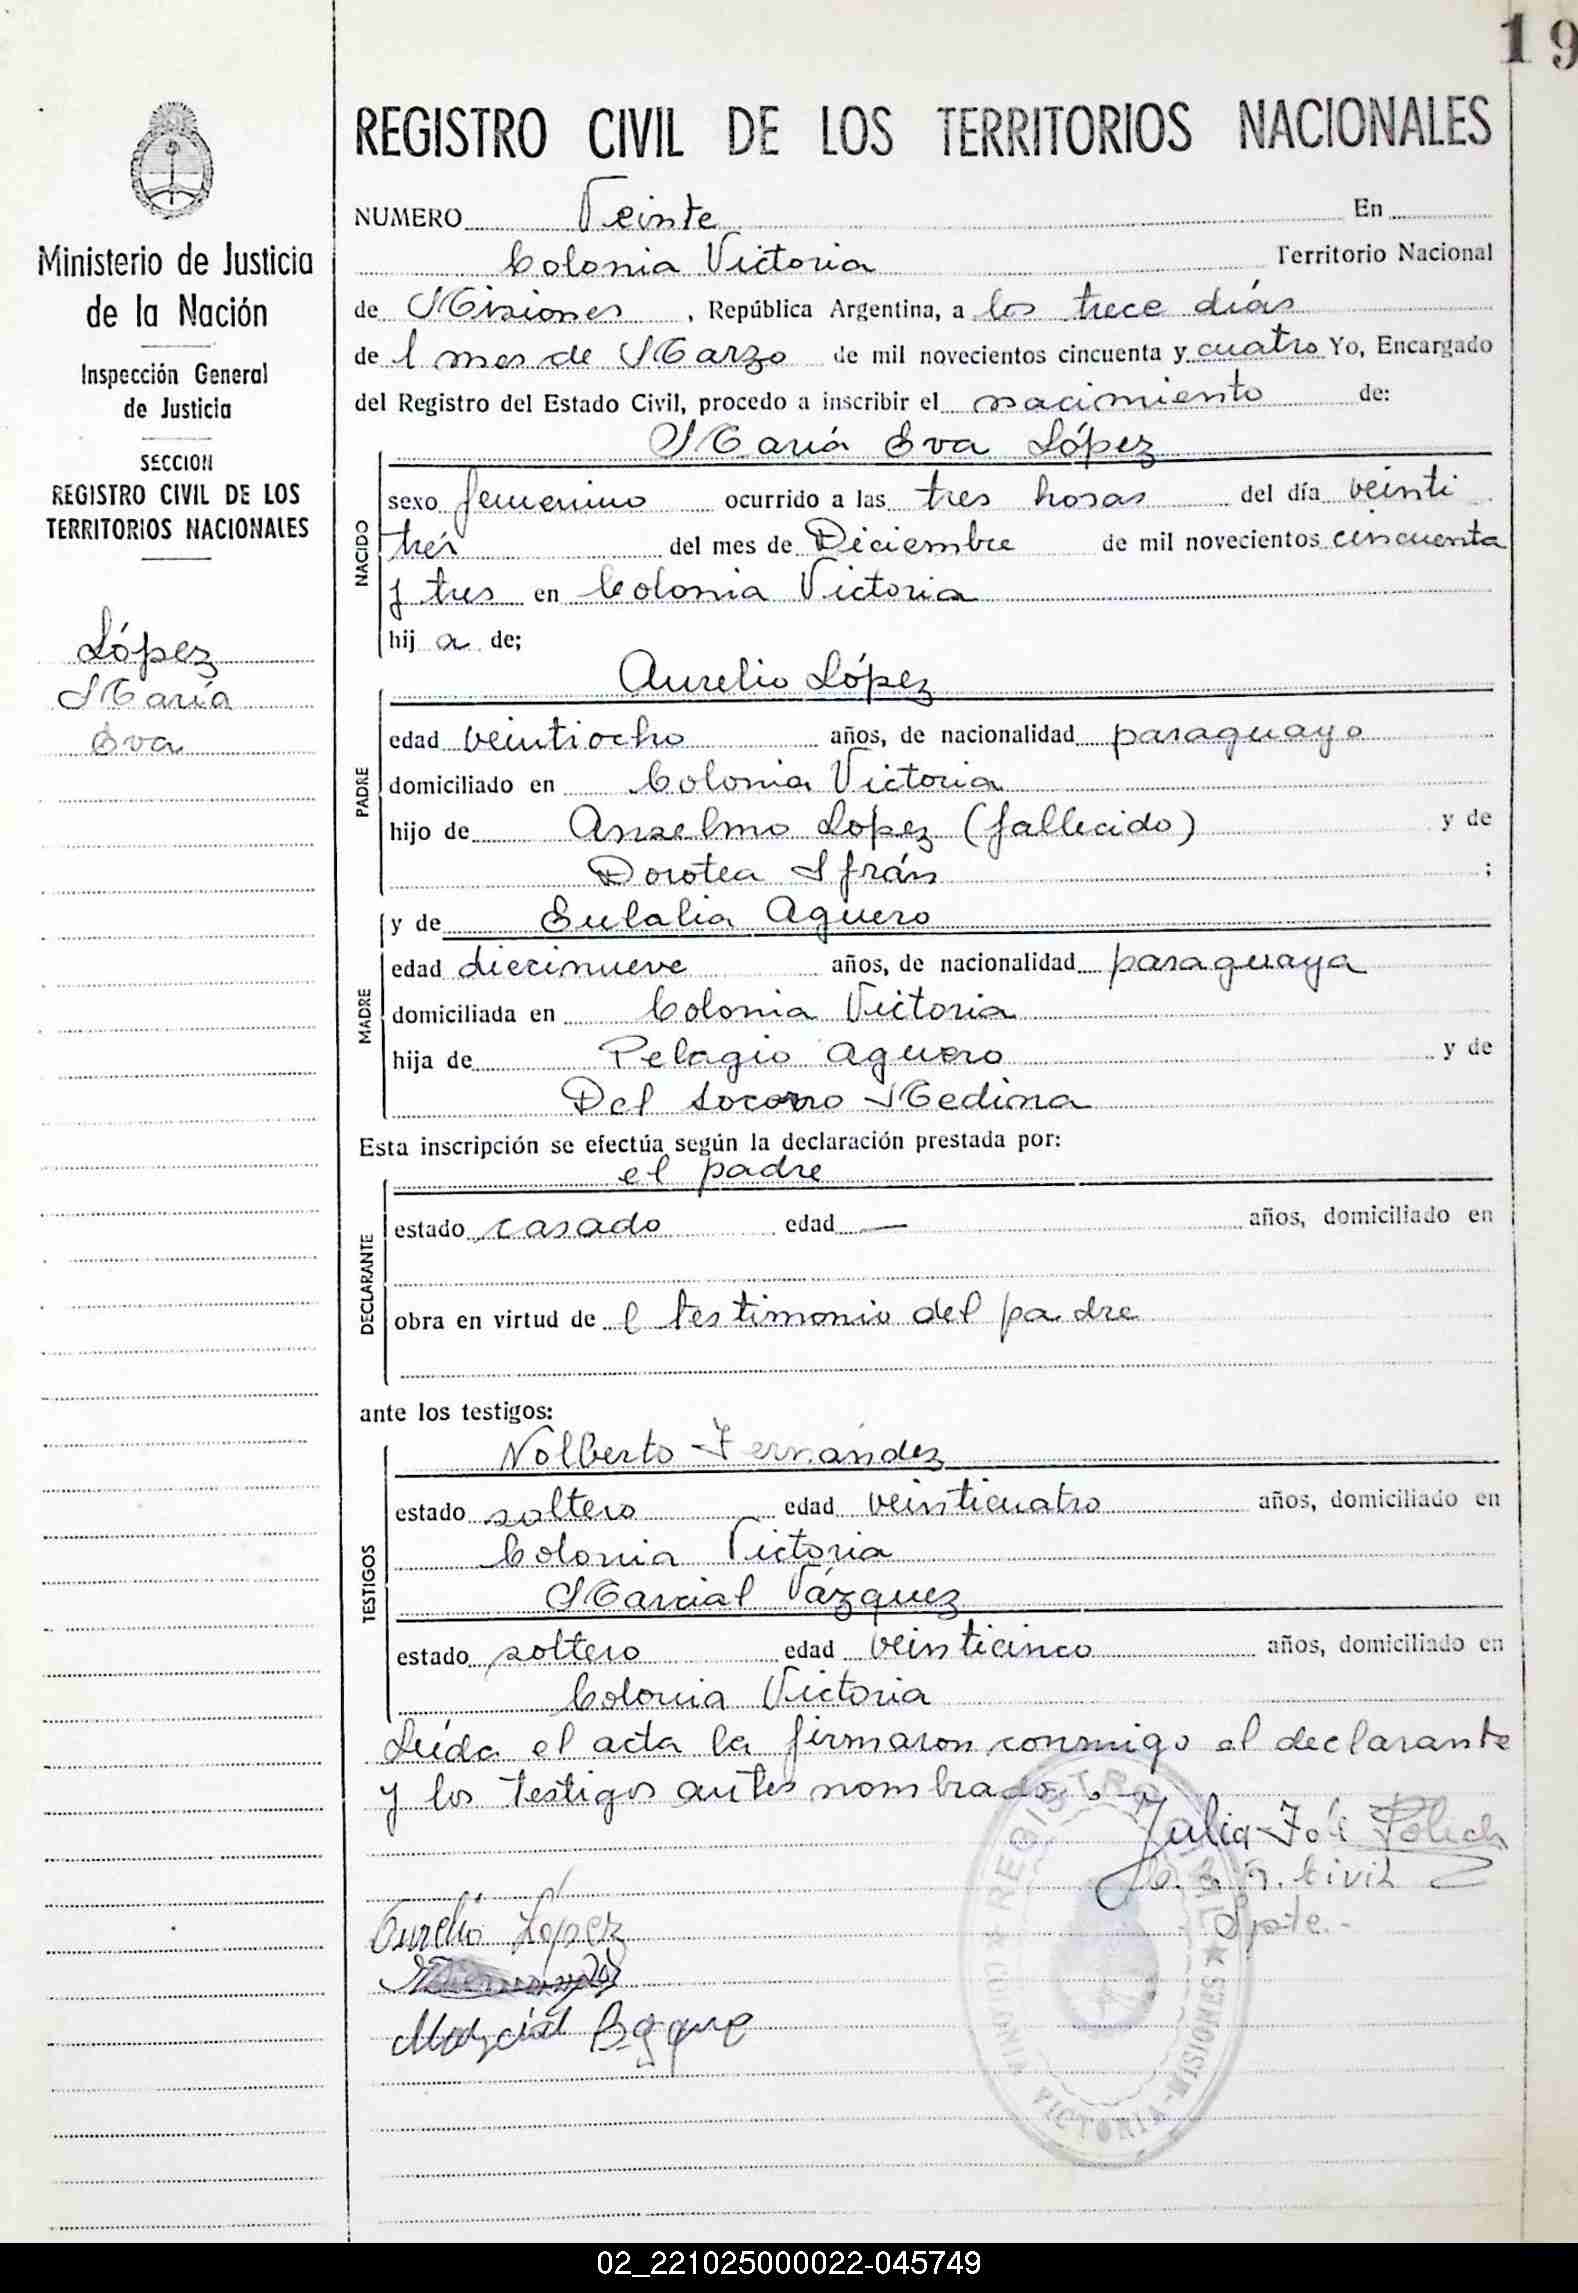 19
REGISTRO CIVIL DE LOS TERRITORIOS NACIONALES
Ministerio de Justicia
de la Nación
Inspección General
de Justicia
SECCION
REGISTRO CIVIL DE LOS
TERRITORIOS NACIONALES
López
María
Eva
NUMERO Veinte En
Colonia Victoria Territorio Nacional
de Misiones, República Argentina, a los trece días
del mes de Marzo de mil novecientos cincuenta y cuatro Yo, Encargado
del Registro del Estado Civil, procedo a inscribir el nacimiento de:
María Eva López
NACIDO
sexo femenino ocurrido a las tres horas del día veinti
trés del mes de Diciembre de mil novecientos cincuenta
y tres en Colonia Victoria
hija de;
Aurelio López
PADRE
edad veintiocho años, de nacionalidad paraguayo
domiciliado en Colonia Victoria
hijo de Anselmo Lopez (fallecido) y de
Dorotea Ifrán ;
y de Eulalia Aguero
MADRE
edad diecinueve años, de nacionalidad paraguaya
domiciliada en Colonia Victoria
hija de Pelagio Aguero y de
Del Socorro Medina
Esta inscripción se efectúa según la declaración prestada por:
el padre
DECLARANTE
estado casado edad — años, domiciliado en
obra en virtud del testimonio del padre
ante los testigos:
Nolberto Fernández
TESTIGOS
estado soltero edad veinticuatro años, domiciliado en
Colonia Victoria
Marcial Vázquez
estado soltero edad veinticinco años, domiciliado en
Colonia Victoria
Leída el acta la firmaron conmigo el declarante
y los testigos antes nombrados
Civil
Spte.-
Aurelio López
REGISTRO CIVIL ★ MISIONES - COLONIA VICTORIA
02_221025000022-045749